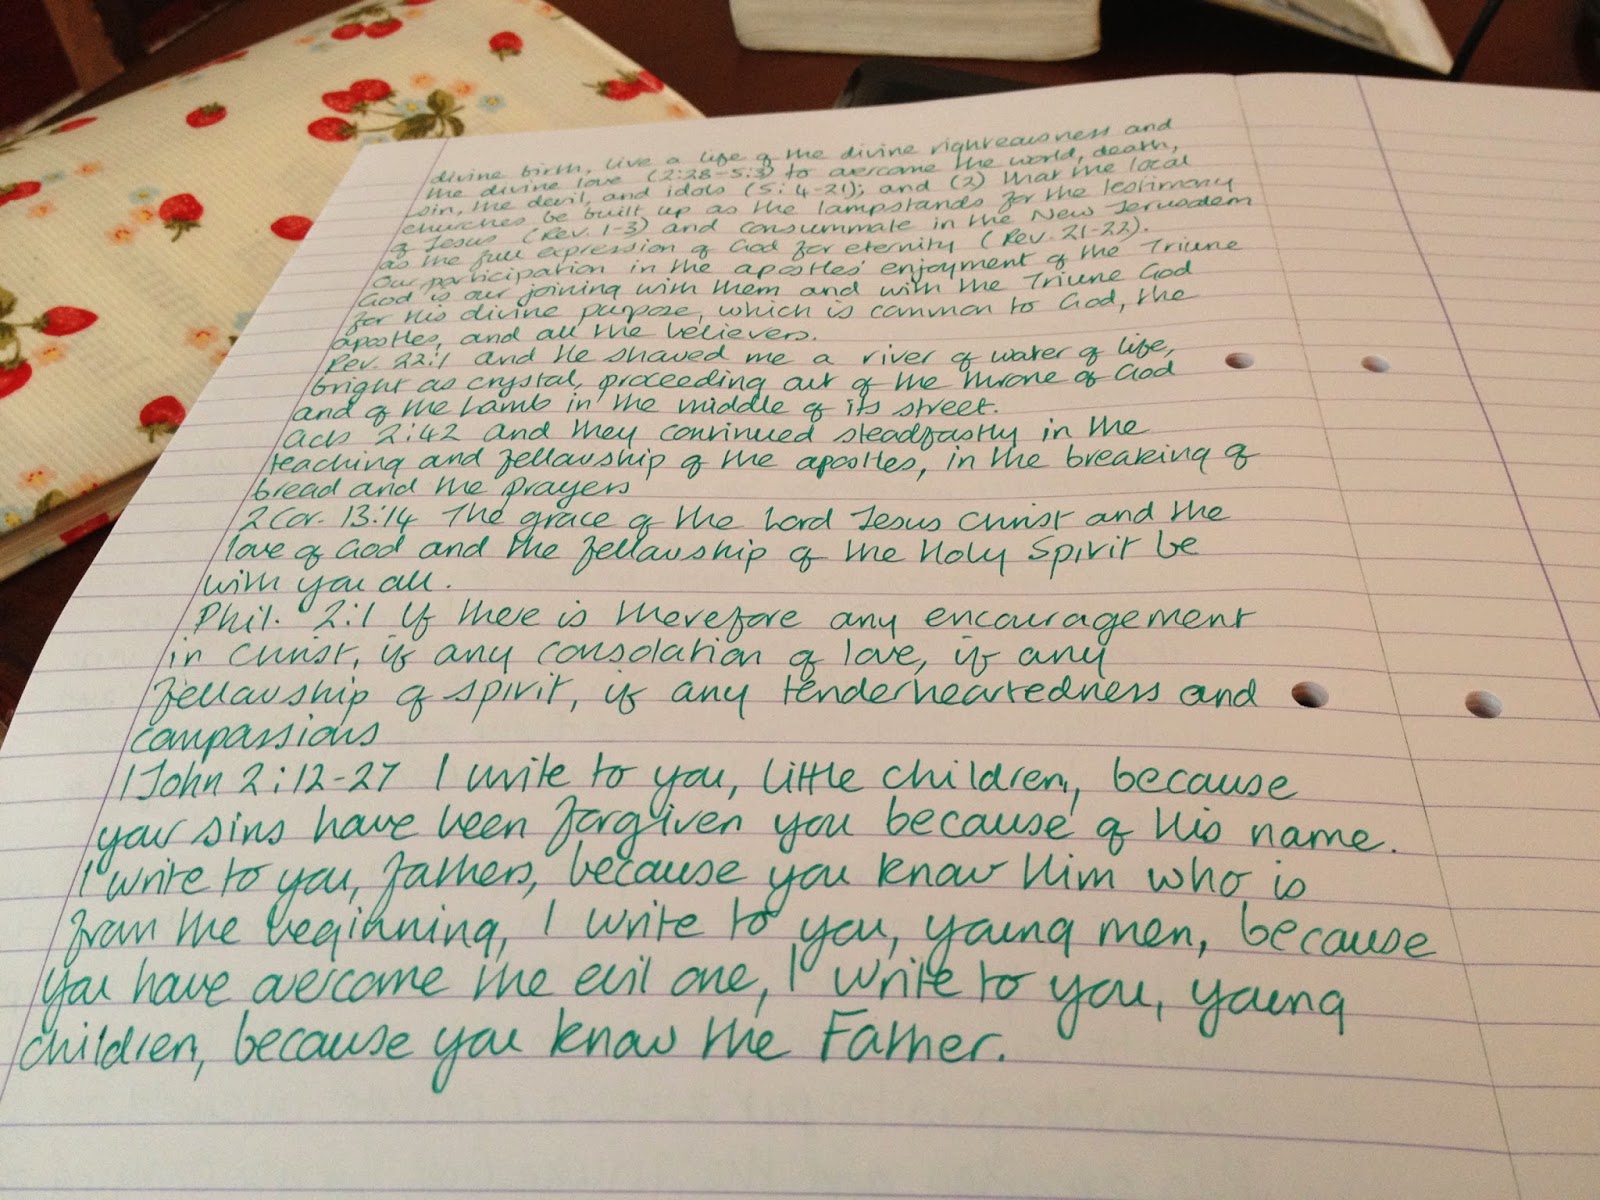 divine birth, live a life of the divine righteousness and
the divine love (2:28-5:3) to overcome the world, death,
sin, the devil, and idols (5:4-21); and (2) that the local
churches be built up as the lampstands for the testimony
of Jesus (Rev. 1-3) and consummate in the New Jerusalem
as the full expression of God for eternity (Rev. 21-22).
Our participation in the apostles' enjoyment of the Triune
God is our joining with them and with the Triune God
for His divine purpose, which is common to God, the
apostles, and all the believers.
Rev. 22:1 and He showed me a river of water of life,
bright as crystal, proceeding out of the throne of God
and of the Lamb in the middle of its street.
Acts 2:42 and they continued steadfastly in the
teaching and fellowship of the apostles, in the breaking of
bread and the prayers
2 Cor. 13:14 The grace of the Lord Jesus Christ and the
love of God and the fellowship of the Holy Spirit be
with you all.
Phil. 2:1 If there is therefore any encouragement
in Christ, if any consolation of love, if any
fellowship of spirit, if any tenderheartedness and
compassions
1 John 2:12-27 I write to you, little children, because
your sins have been forgiven you because of His name.
I write to you, fathers, because you know Him who is
from the beginning, I write to you, young men, because
you have overcome the evil one, I write to you, young
children, because you know the Father.